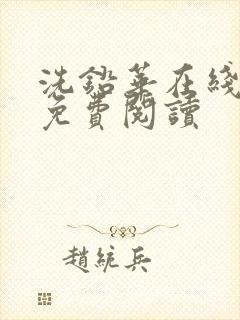 洗鉛華在綫
免費閱讀
趙統兵